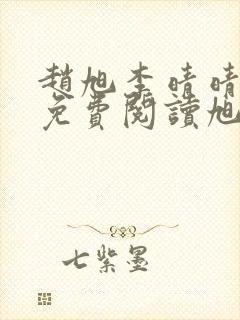 趙旭李晴晴
免費閱讀旭
七紫墨